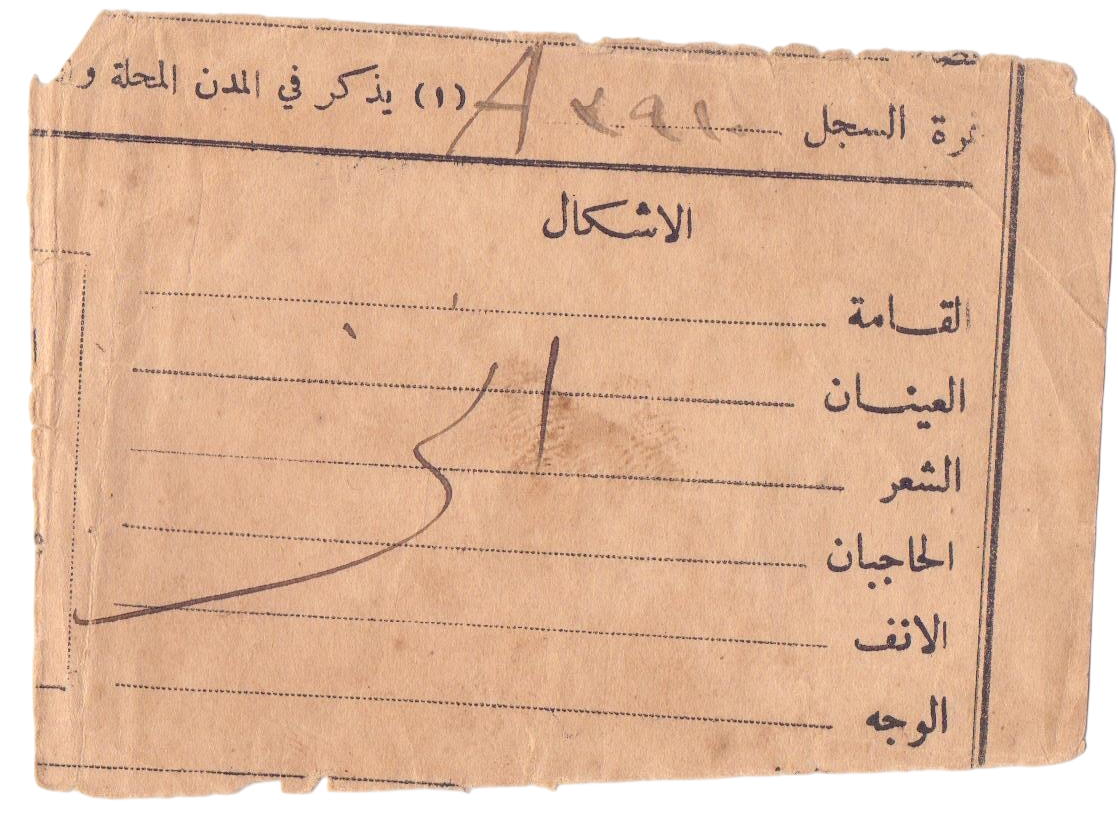 نمرة السجل A (١) يذكر في المدن المحلة و
الاشكال
القامة
العينان
الشعر
الحاجبان
الانف
الوجه